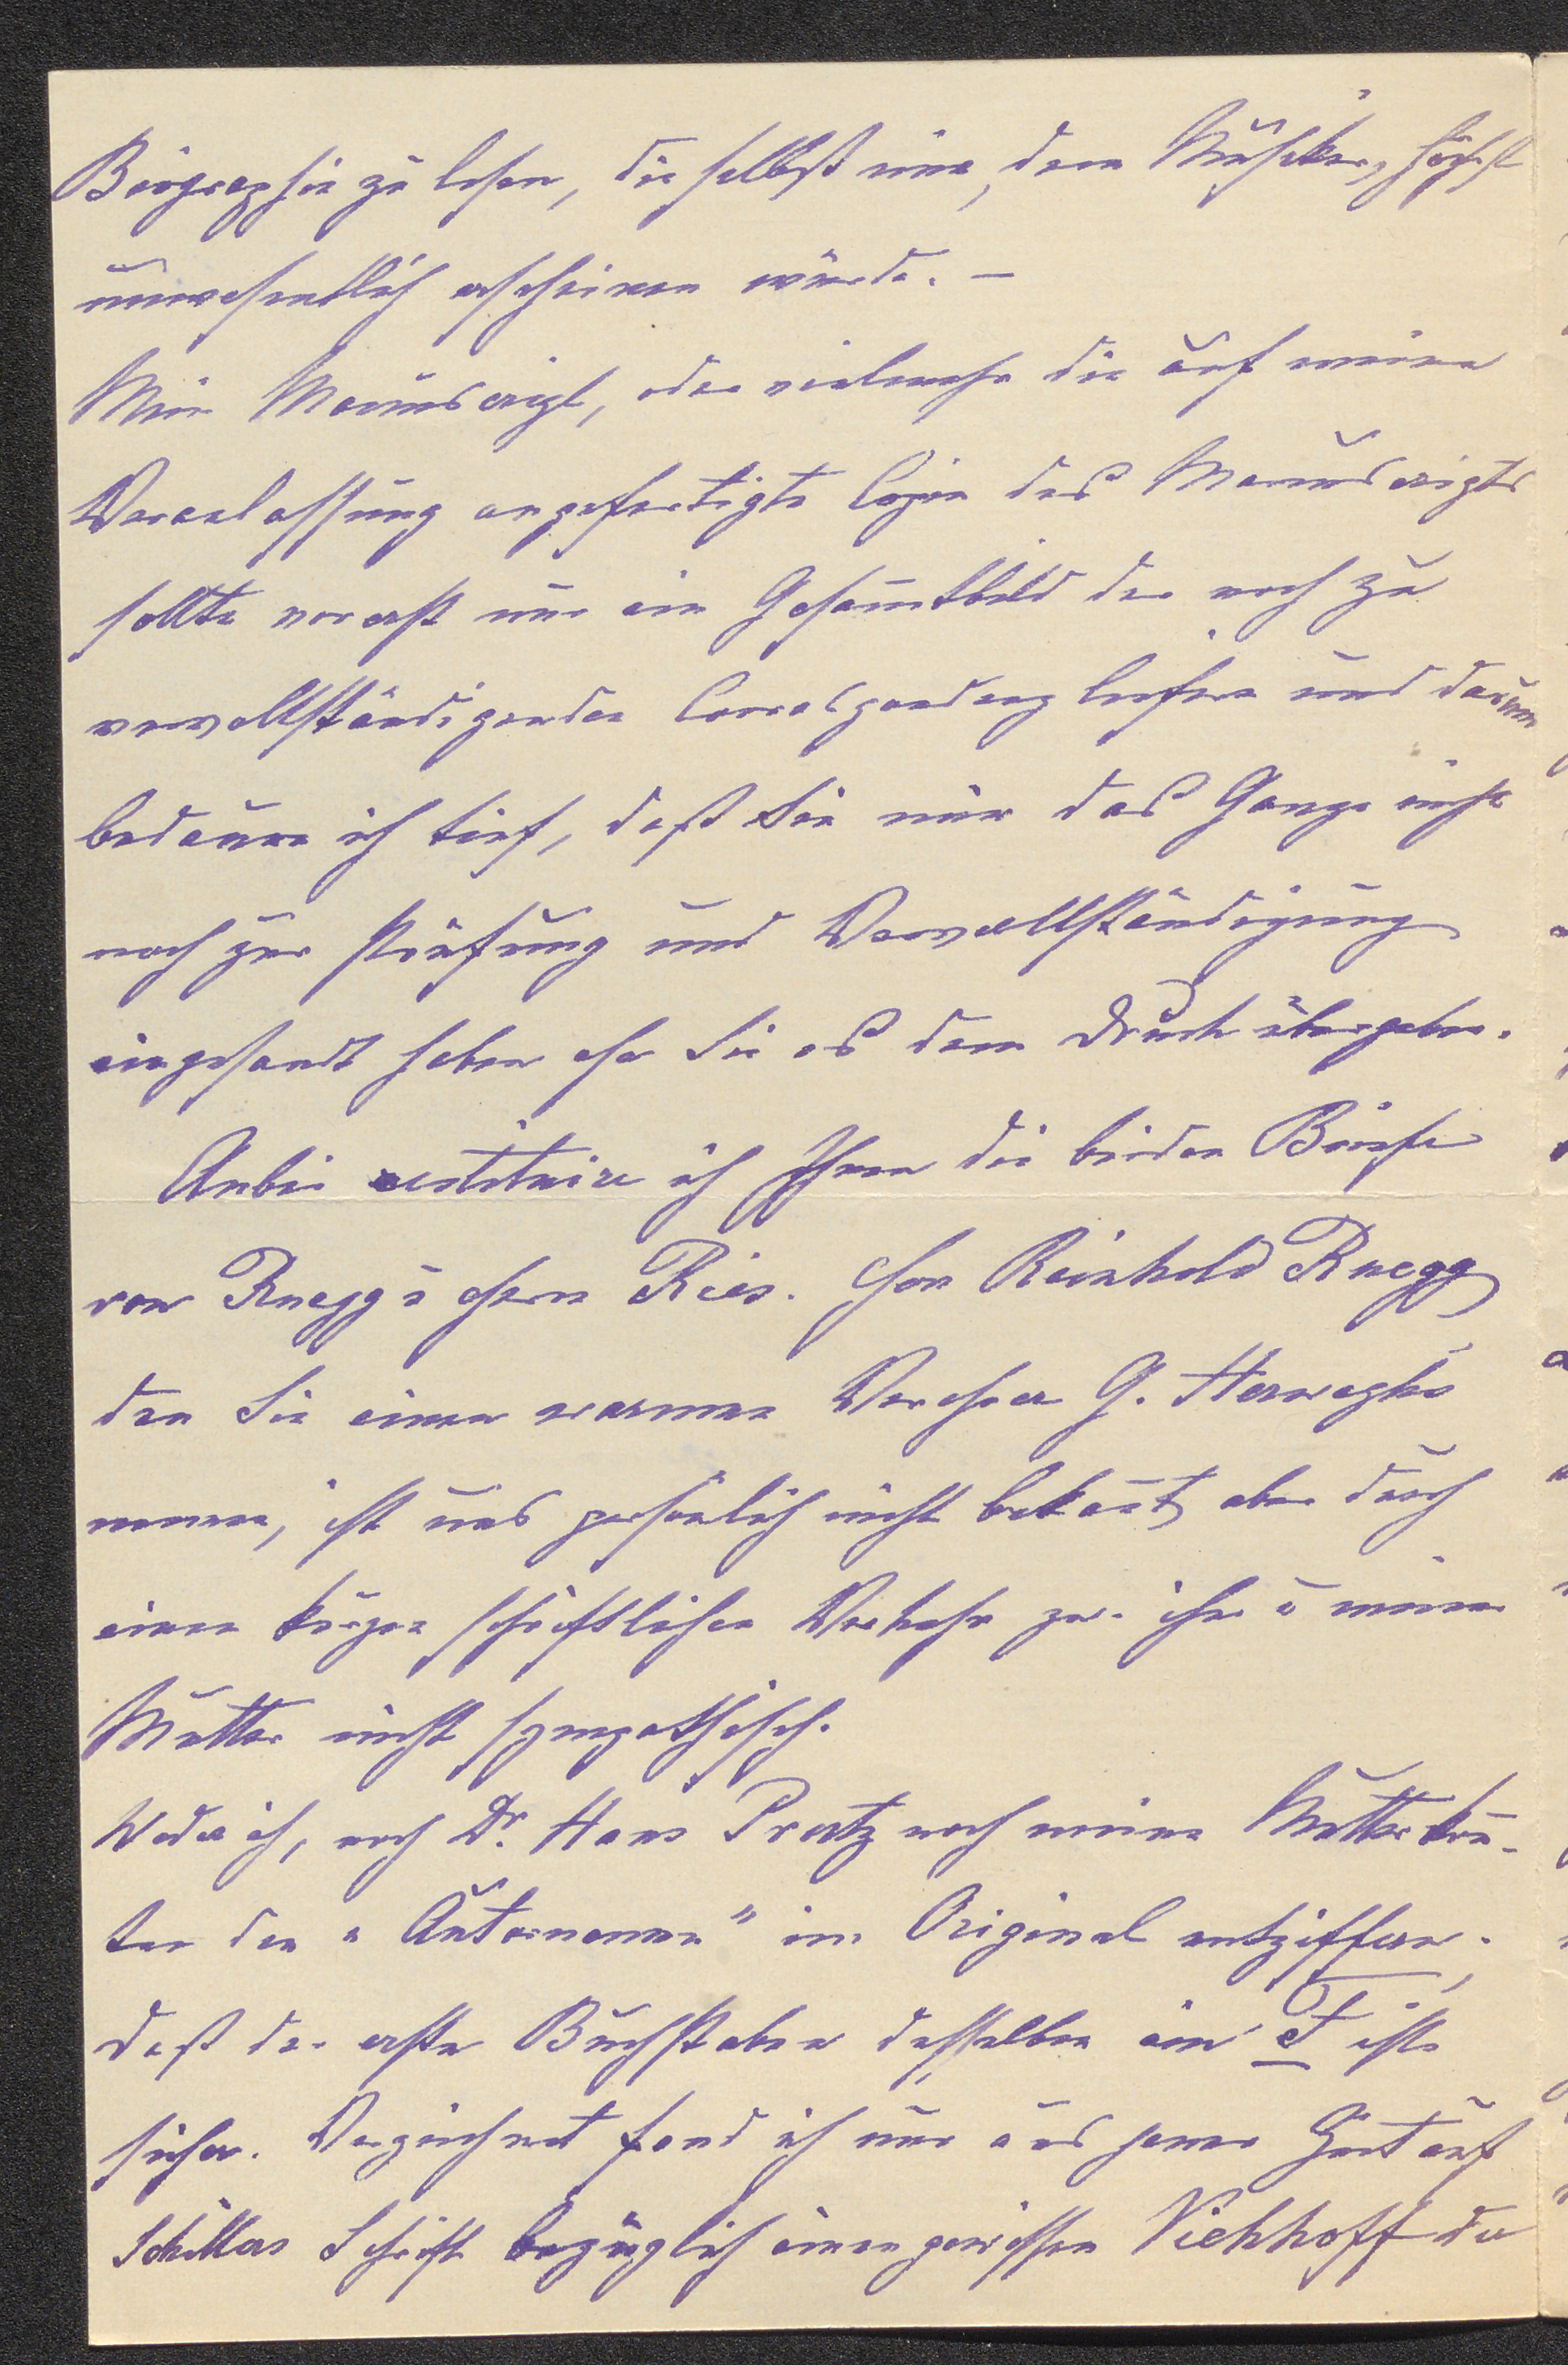 Biographie zu lesen, die selbst mir, dem Musiker, höchst
unwesentlich erscheinen würde. –
Mein Manuscript, oder vielmehr die auf meine
Veranlassung angefertigte Copie des Manuscripts
sollte vorerst nur ein Gesam̄tbild der noch zu
vervollständigenden Correspondenz liefern und darum
bedaure ich tief, daß Sie mir das Ganze nicht
noch zur Prüfung und Vervollständigung
eingesandt haben ehe Sie es dem Druck übergeben.
Anbei restituire ich Ihnen die beiden Briefe
von Ruegg u Herrn Ries. Herr Reinhold Ruegg
den Sie einen warmen Verehrer G. Herweghs
nennen, ist uns persönlich nicht bekan̄t, aber durch
einen kurzen schriftlichen Verkehr zw. ihm u meiner
Mutter nicht sympathisch.
Weder ich, noch Dr. Hans Prutz noch meine Mutter kon̄-
ten den "Autornamen" im Original entziffern;
daß der erste Buchstaben desselben ein F ist
sicher. Verzeichnet fand ich nur aus jener Zeit auf
Schillers Schrift bezüglich einen gewissen Viehhoff der